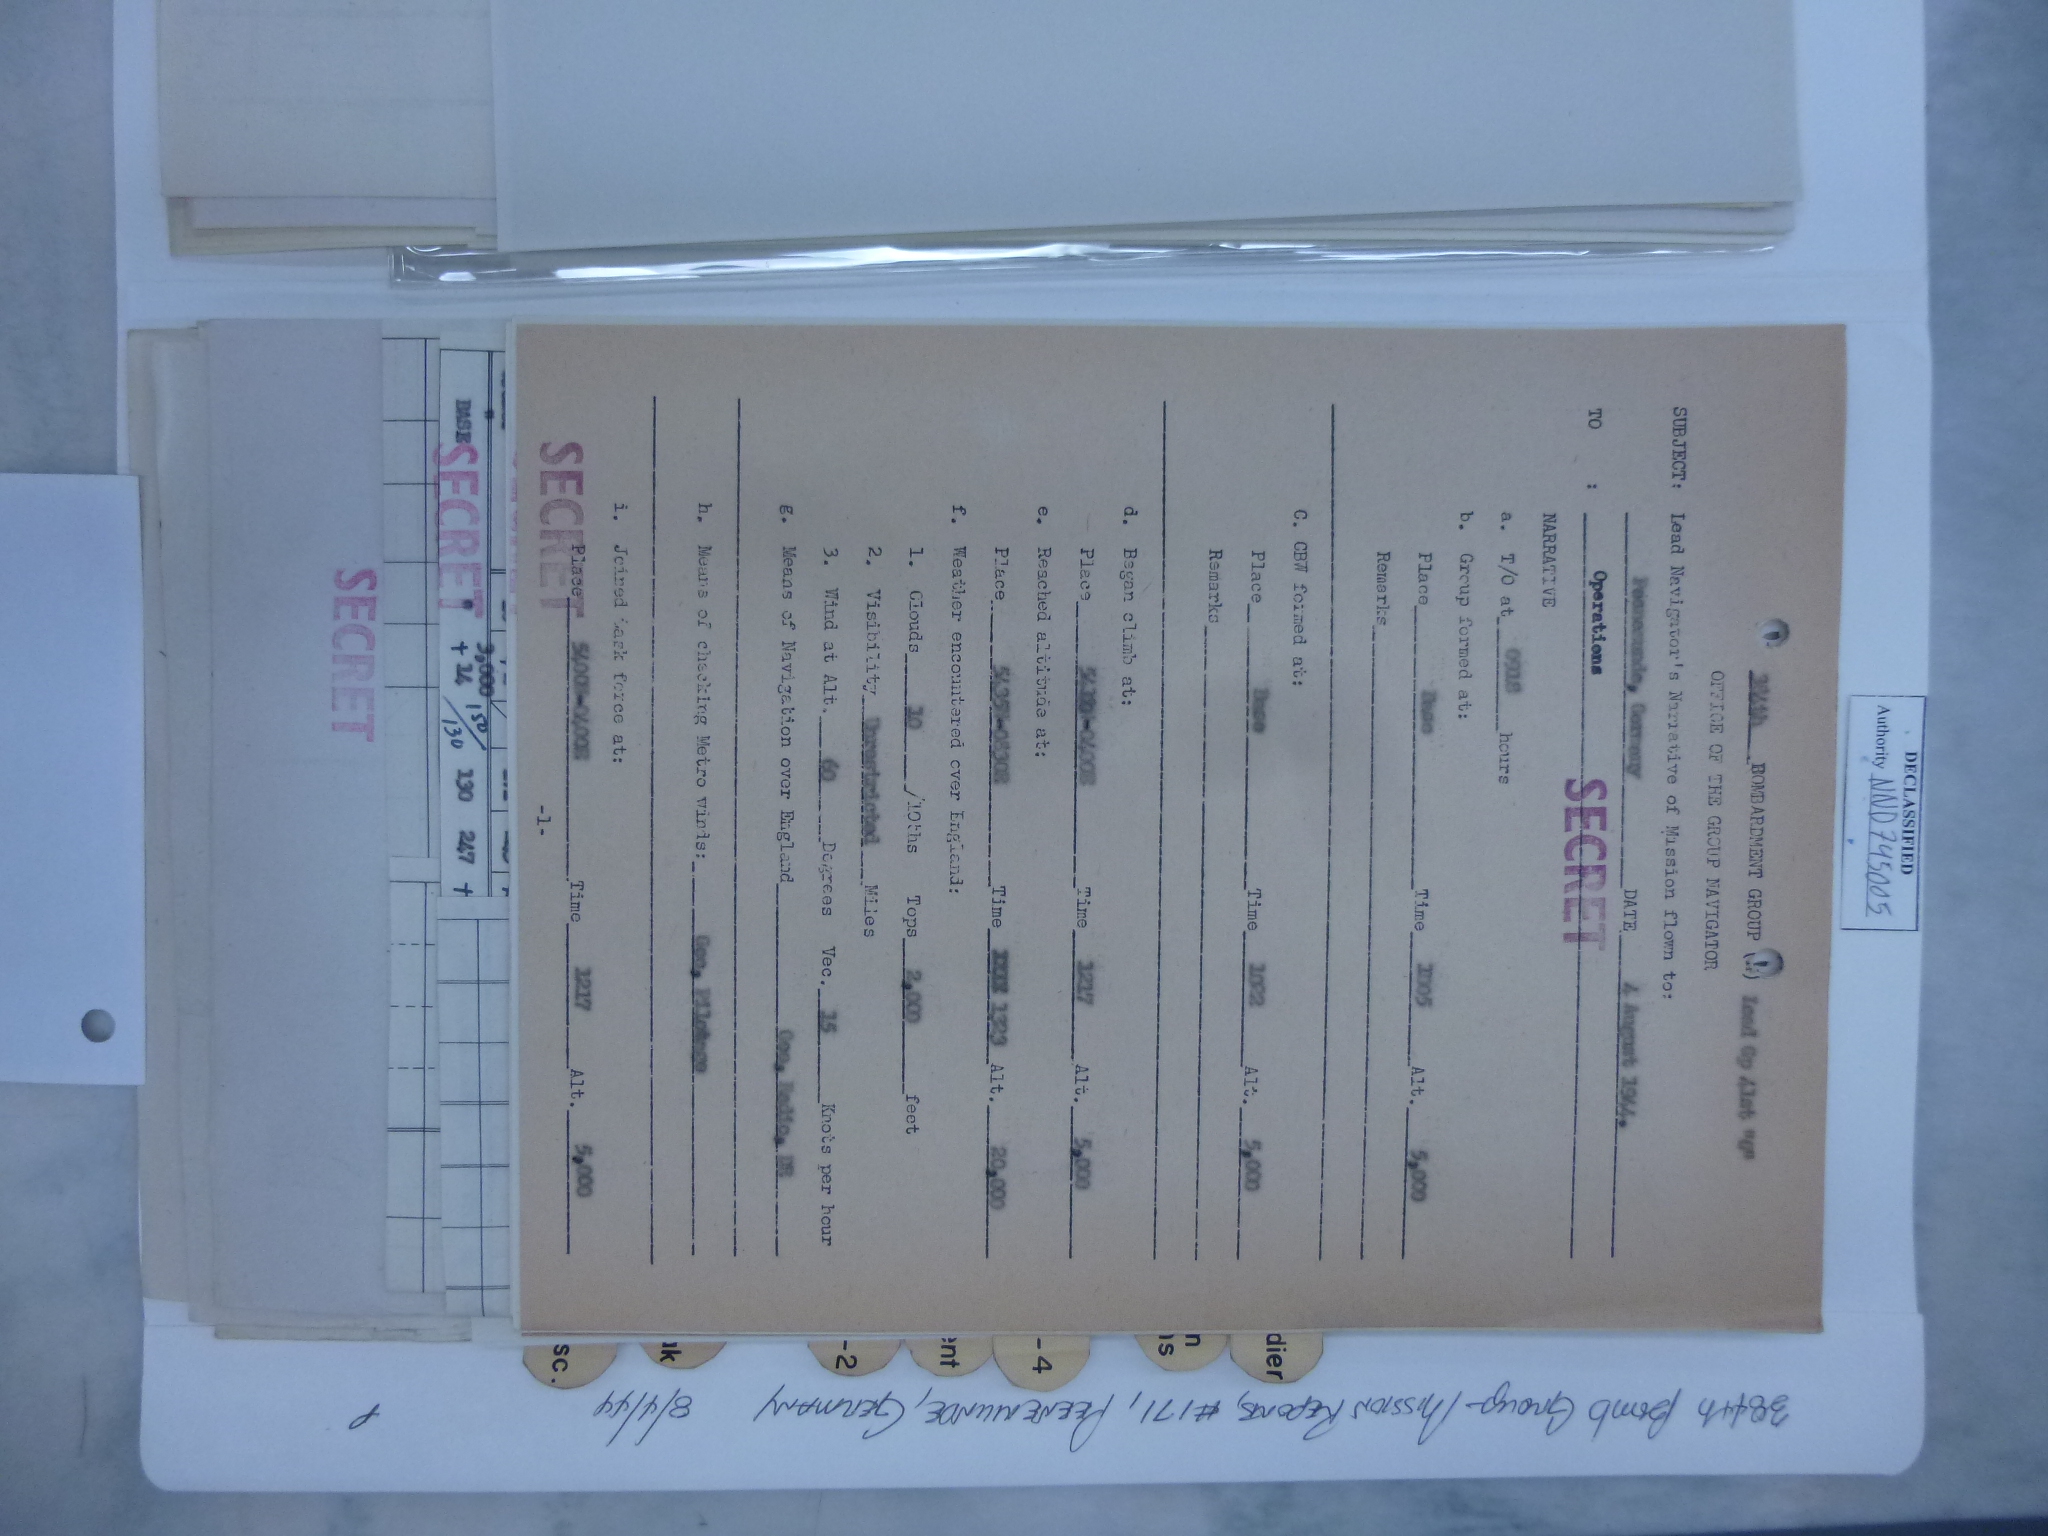 DECLASSIFIED
Authority NND 745005
384th BOMBARDMENT GROUP (H) Lead Gp
OFFICE OF THE GROUP NAVIGATOR
SUBJECT: Lead Navigator's Narrative of Mission flown to:
Peenemunde, Germany DATE 4 August 1944.
TO : Operations
SECRET
NARRATIVE
a. T/O at hours
b. Group formed at:
Place Base Time 1005 Alt. 5,000
Remarks
C. CBW formed at:
Place Base Time 1022 Alt. 5,000
Remarks
d. Began climb at:
Place Time 1217 Alt. 5,000
e. Reached altitude at:
Place Time 1323 Alt. 20,000
f. Weather encountered over England:
1. Clouds 10 /10ths Tops 2,000 feet
2. Visibility Unrestricted Miles
3. Wind at Alt. 60 Degrees Vec. 15 Knots per hour
g. Means of Navigation over England Gee, Radio, DR
h. Means of checking Metro winds: Gee, Pilotage
i. Joined task force at:
Place Time 1217 Alt. 5,000
SECRET
-1-
BASE
SECRET
3,000 150/
+ 14 /130 130 247 +
SECRET
sc.
ak
-2
ent
-4
n
ns
dier
384th Bomb Group - Mission Reports, #171, PEENEMUNDE, GERMANY 8/4/44